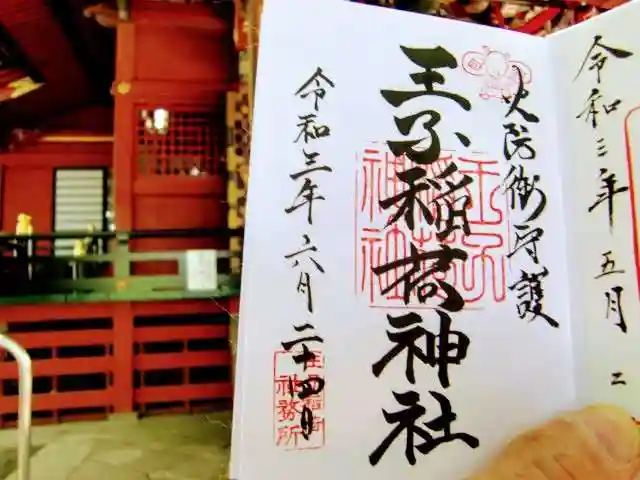 令和三年五月二
火防御守護
王子稲荷神社
王子稲荷神社
令和三年六月二十四日
王子稲荷
神務所